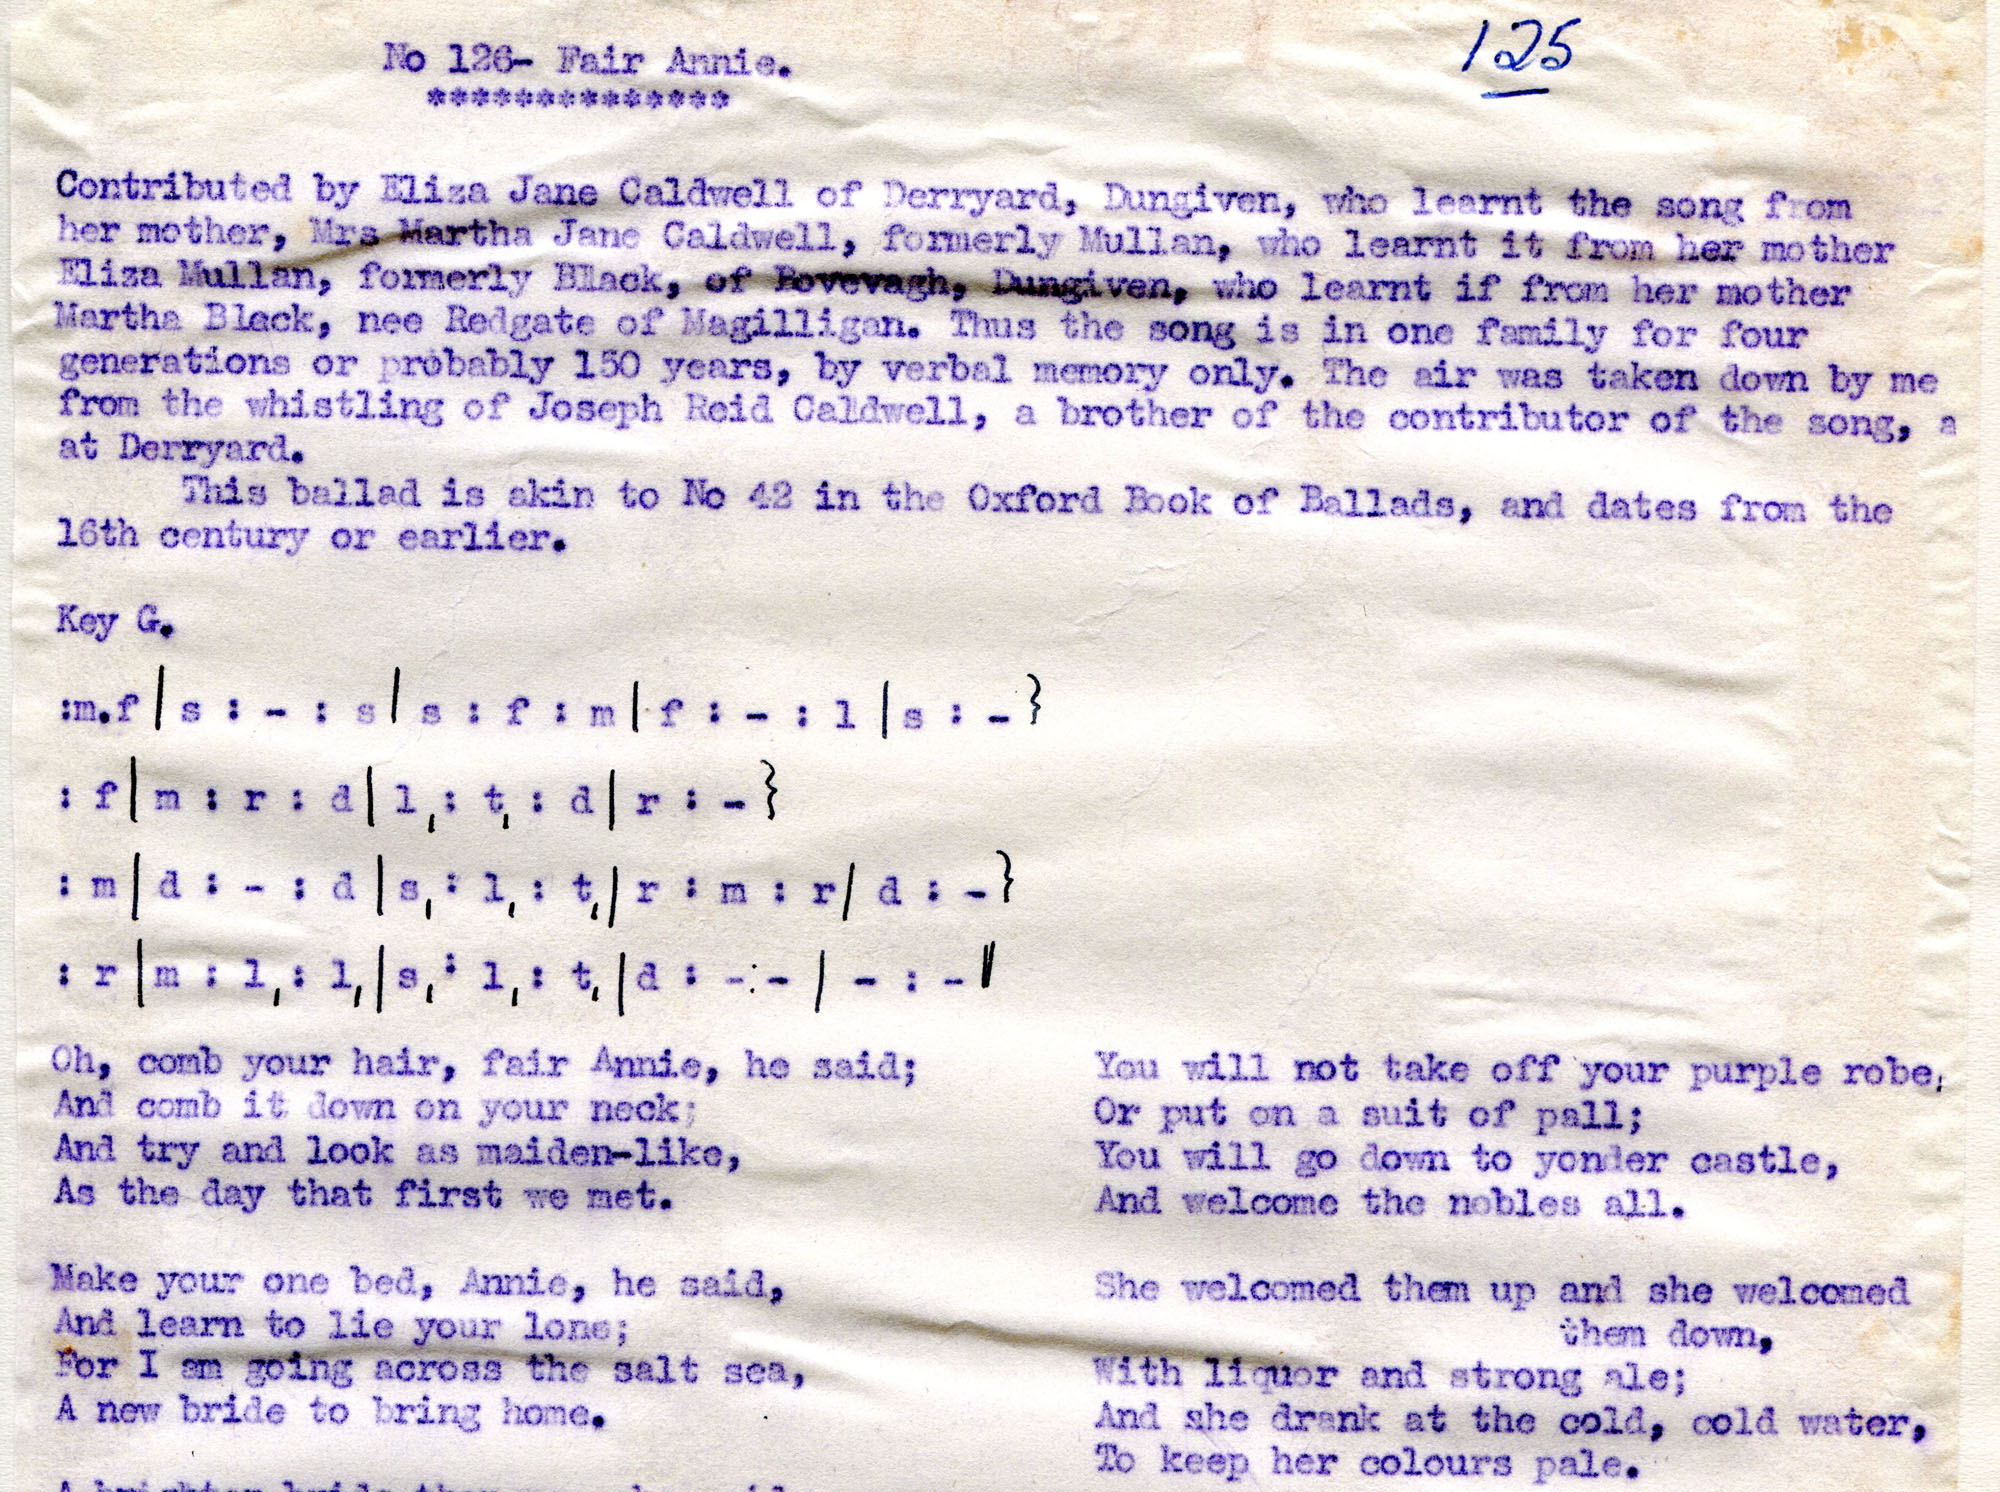 No 126- Fair Annie.
125
**************
Contributed by Eliza Jane Caldwell of Derryard, Dungiven, who learnt the song from
her mother, Mrs Martha Jane Caldwell, formerly Mullan, who learnt it from her mother
Eliza Mullan, formerly Black, of Bovevagh, Dungiven, who learnt if from her mother
Martha Black, nee Redgate of Magilligan. Thus the song is in one family for four
generations or probably 150 years, by verbal memory only. The air was taken down by me
from the whistling of Joseph Reid Caldwell, a brother of the contributor of the song, a
at Derryard.
This ballad is akin to No 42 in the Oxford Book of Ballads, and dates from the
16th century or earlier.
Key G.
:m.f | s : - : s | s : f : m | f : - : l | s : - }
: f | m : r : d | l, : t, : d | r : - }
: m | d : - : d | s, : l, : t, | r : m : r / d : - }
: r | m : l, : l, | s, : l, : t, | d : - : - | - : - ||
Oh, comb your hair, fair Annie, he said;
And comb it down on your neck;
And try and look as maiden-like,
As the day that first we met.
Make your one bed, Annie, he said,
And learn to lie your lone;
For I am going across the salt sea,
A new bride to bring home.
You will not take off your purple robe,
Or put on a suit of pall;
You will go down to yonder castle,
And welcome the nobles all.
She welcomed them up and she welcomed
them down,
With liquor and strong ale;
And she drank at the cold, cold water,
To keep her colours pale.